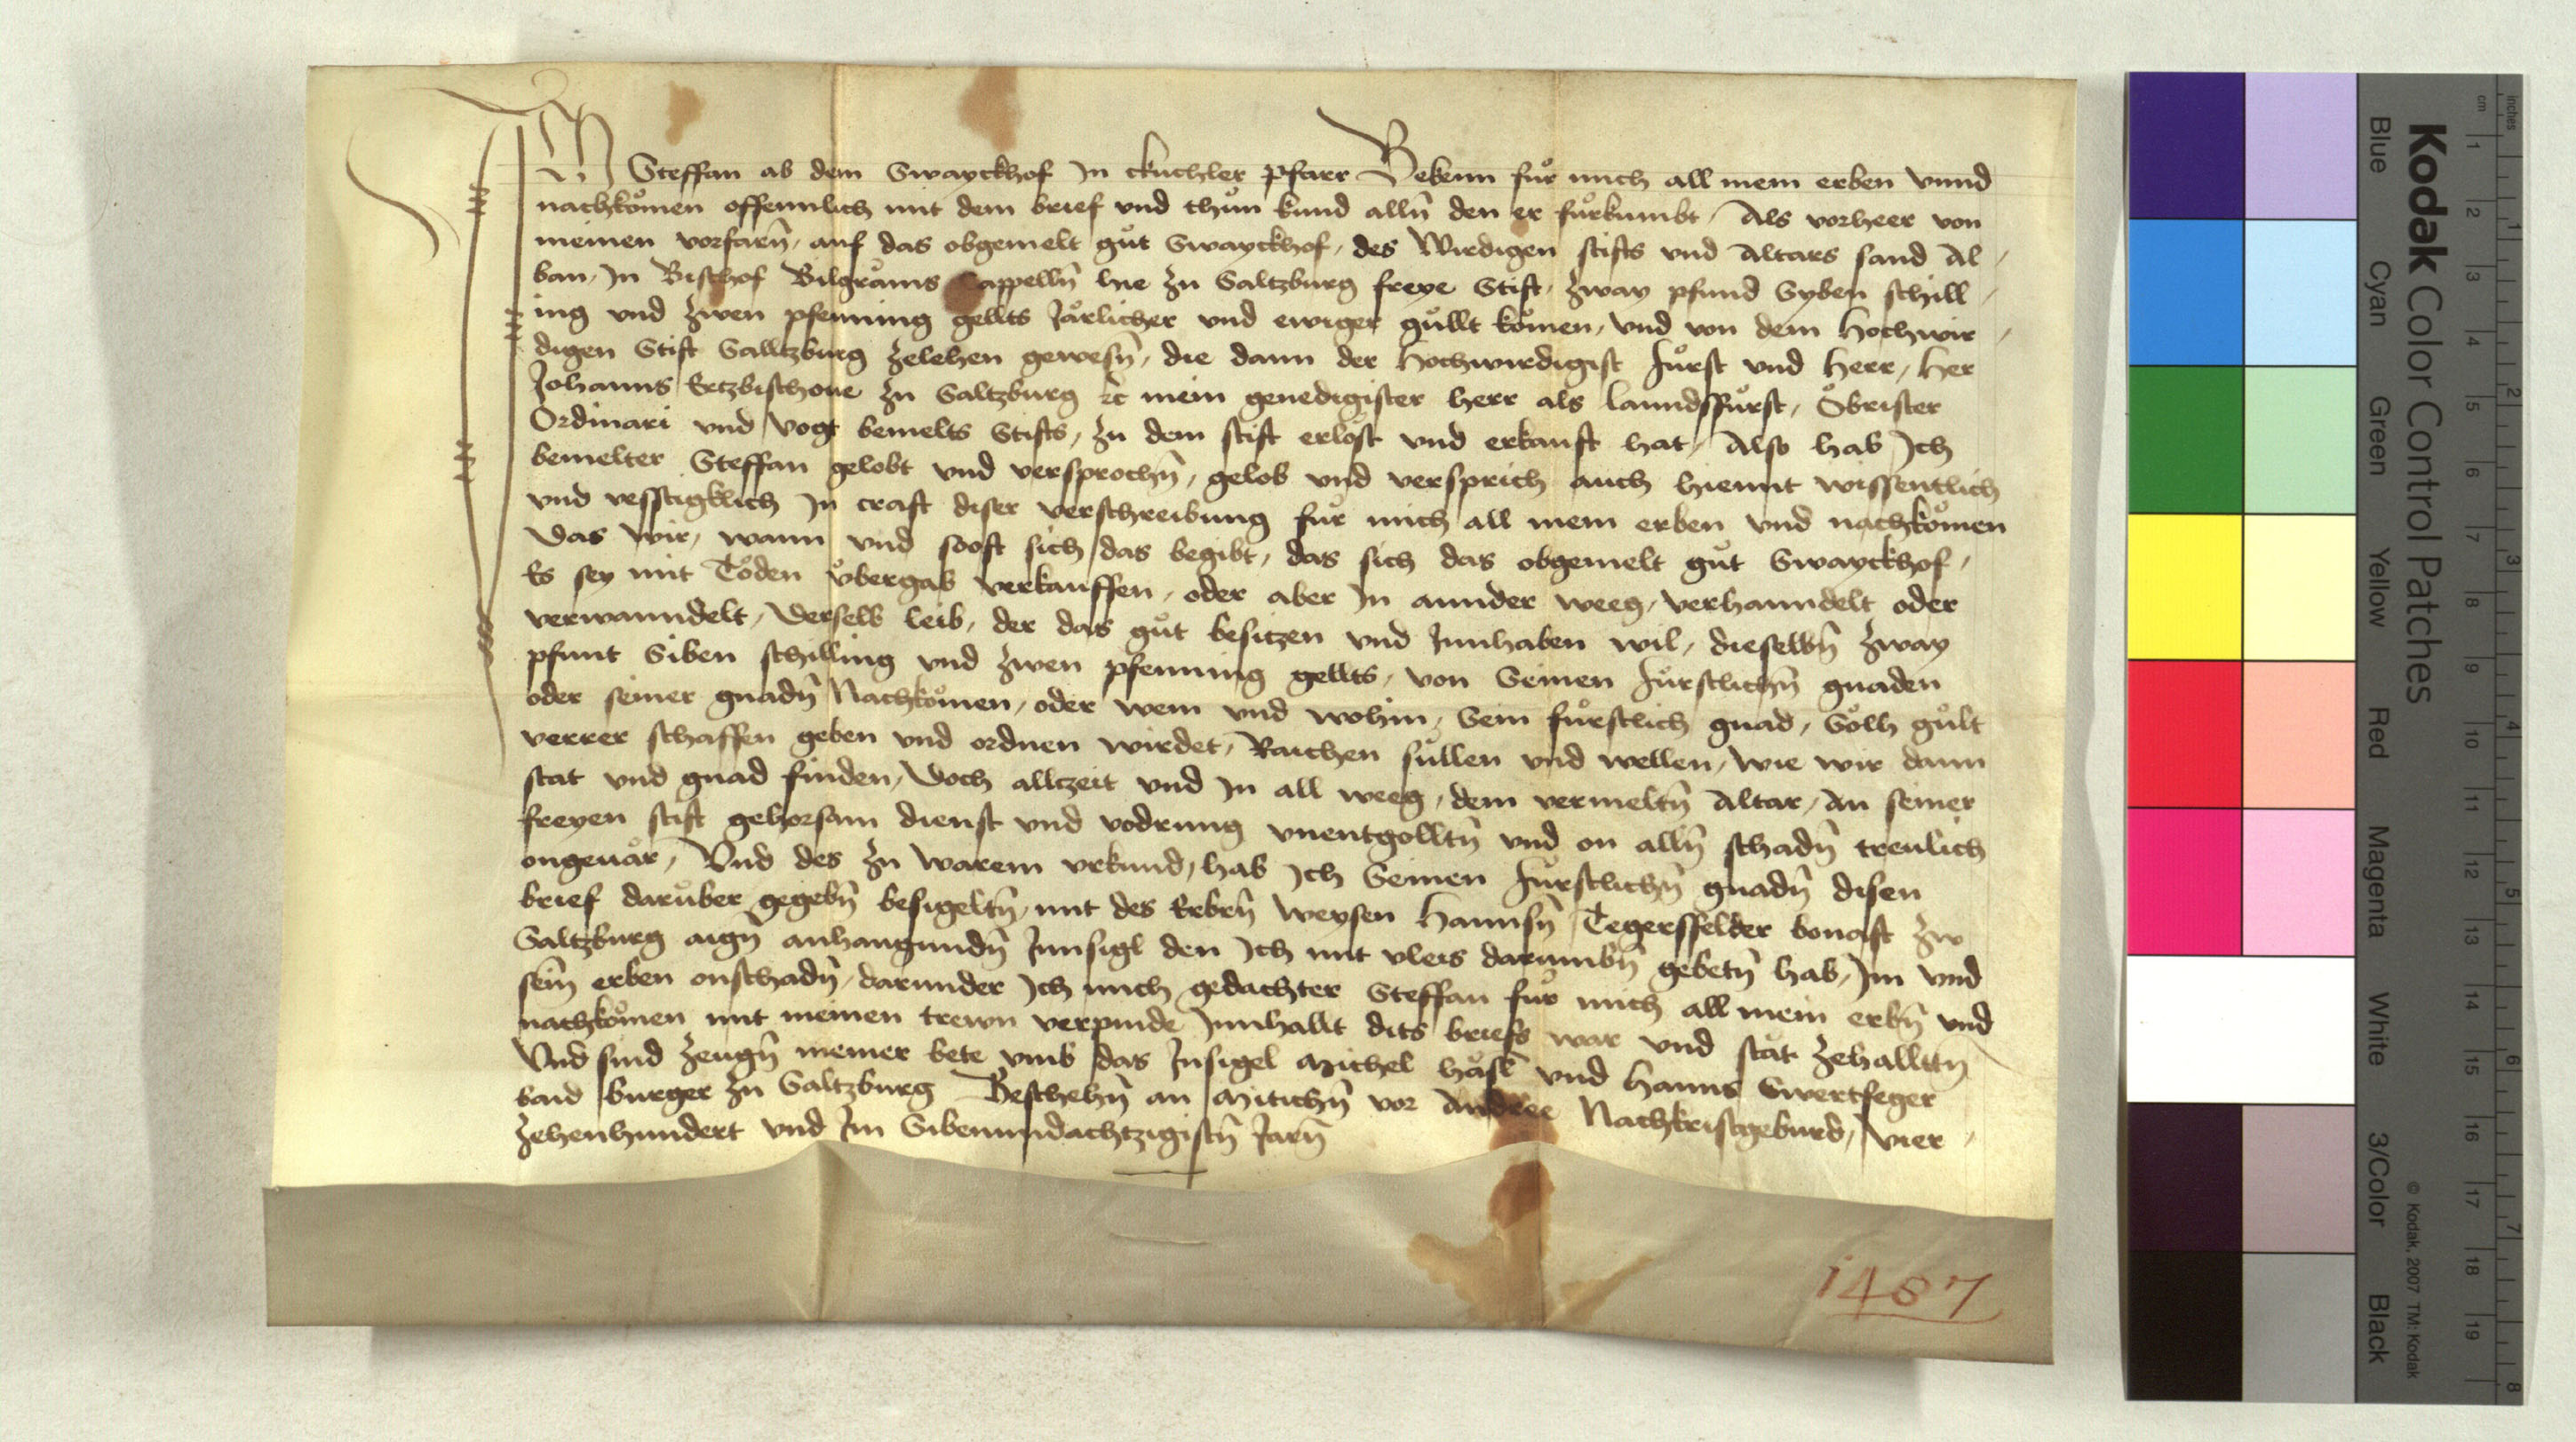 Ich Steffan ab dem Swayckhof In ckuchler pfarr Bekenn für mich all mein erben vnnd
nachkomen offennlich mit dem brief vnd thůn kund alln̄ den er fürkumbt / Als vorheer von
meinen vorfarn̄ / auf das obgemelt gůt Swayckhof / des Wirdigen stifts vnd Altars sand Al /
ban / In Bischof Bilgrams Cappelln̄ hie zu Saltzburg freye Stift / zway pfund Syben schill /
ing vnd zwen pfenning gellts Järlicher vnd ewiger güllt komen / vnd von dem hochwir /
digen Stift Salltzburg zelehen gewesn̄ / die dann der hochwirdigist fürst vnd herr / her
Johanns Ertzbischoue zu Saltzburg ꝛc mein genedigister herr als lanndsfürst / Öbrister
Ordinari vnd Vogt bemelts Stifts / zu dem stift erlöst vnd erkauft hat / Also hab Ich
bemelter Steffan gelobt vnd versprochn̄ / gelob vnd versprich auch hiemit wissentlich
vnd vesstigklich In craft diser verschreibung für mich all mein erben vnd nachkomen
Das wir / wann vnd sooft sich das begibt / das sich das obgemelt gůt Swayckhof /
Es sey mit Töden übergab verkauffen / oder aber In annder weeg / verhanndelt oder
verwanndelt / Derselb leib / der das gůt besitzen vnd Innhaben wil / dieselbn̄ zway
pfunt Siben schilling vnd zwen pfenning gellts / von Seinen fürstlichn̄ gnaden
oder seiner gnadn̄ Nachkomen / oder wem vnd wohin / Sein fürstlich gnad / Sölh gült
verrer schaffen geben vnd ordnen wirdet / Raichen süllen vnd wellen / wie wir dann
stat vnd gnad finden / Doch allczeit vnd In all weeg / dem vermeltn̄ Altar / An seiner
freyen stift gehorsam dienst vnd vodrung vnentgolltn̄ vnd on alln̄ schadn̄ treulich
ongeuär / Vnd des zu warem vrkund / hab Ich Seinen fürstlichn̄ gnadn̄ disen
brief darüber gegebn̄ besigeltn̄ / mit des Erbrn̄ weysen Hannsn̄ Tegersselder bonaft zw
Saltzburg aign̄ anhangundn̄ Innsigl den Ich mit vleis darumbn̄ gebetn̄ hab / Im vnd
sein̄ erben onschadn̄ / darunder Ich mich gedachter Steffan für mich all mein erbn̄ vnd
nachkomen mit meinen trewn verpinde Innhallt dits briefs war vnd stät zehalltn̄
Vnd sind zeugn̄ meiner bete vmb das Insigel Michel häsl vnd Hanns Swertfeger
baid burger zu Saltzburg Beschehn̄ an Mitichn̄ vor Andree Nachkristgeburd / vier /
zehenhundert vnd Im Sibenundachtzigistn̄ Jarn̄
1487
Kodak Color Control Patches
Blue Cyan Green Yellow Red Magenta White 3/Color Black
© Kodak, 2007 TM: Kodak
cm 1 2 3 4 5 6 7 8 9 10 11 12 13 14 15 16 17 18 19
inches 1 2 3 4 5 6 7 8